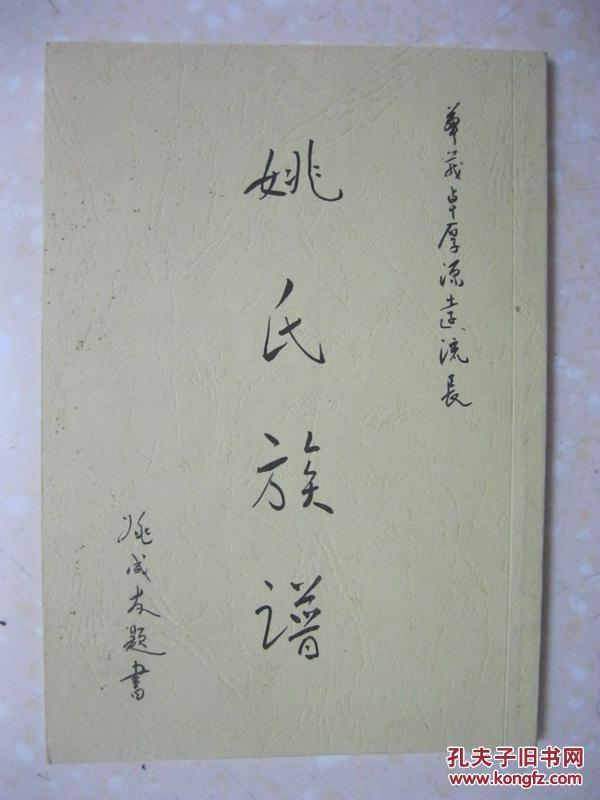 厚源遠流長
姚氏族谱
姚成友题書
孔夫子旧书网
www.kongfz.com